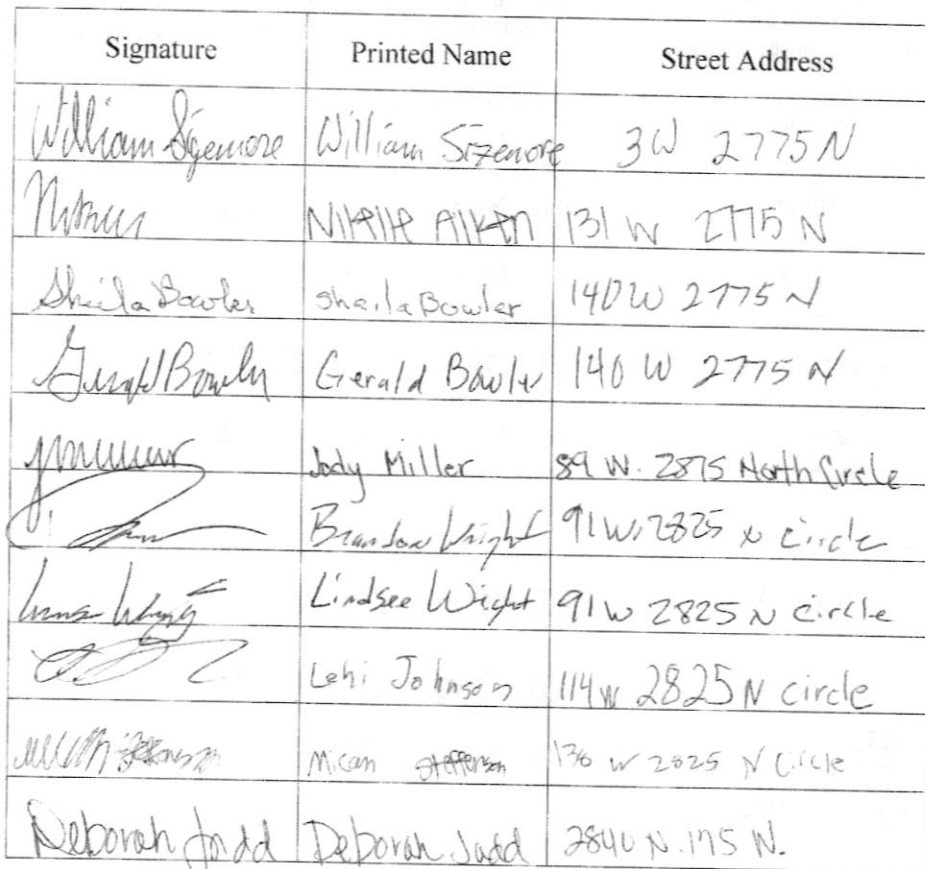 Signature Printed Name Street Address
William Sizemore William Sizemore 3W 2775 N
Nikelle Aiken 131 W 2775 N
Sheila Bowler Sheila Bowler 140 W 2775 N
Gerald Bowler Gerald Bowler 140 W 2775 N
Jody Miller 89 W. 2875 North Circle
Brandon Wright 91 W. 2825 N circle
Lindsee Wight 91 W 2825 N circle
Lehi Johnson 114 W 2825 N circle
Micah Steffenson 136 W 2825 N Circle
Deborah Judd Deborah Judd 2840 N. 175 W.